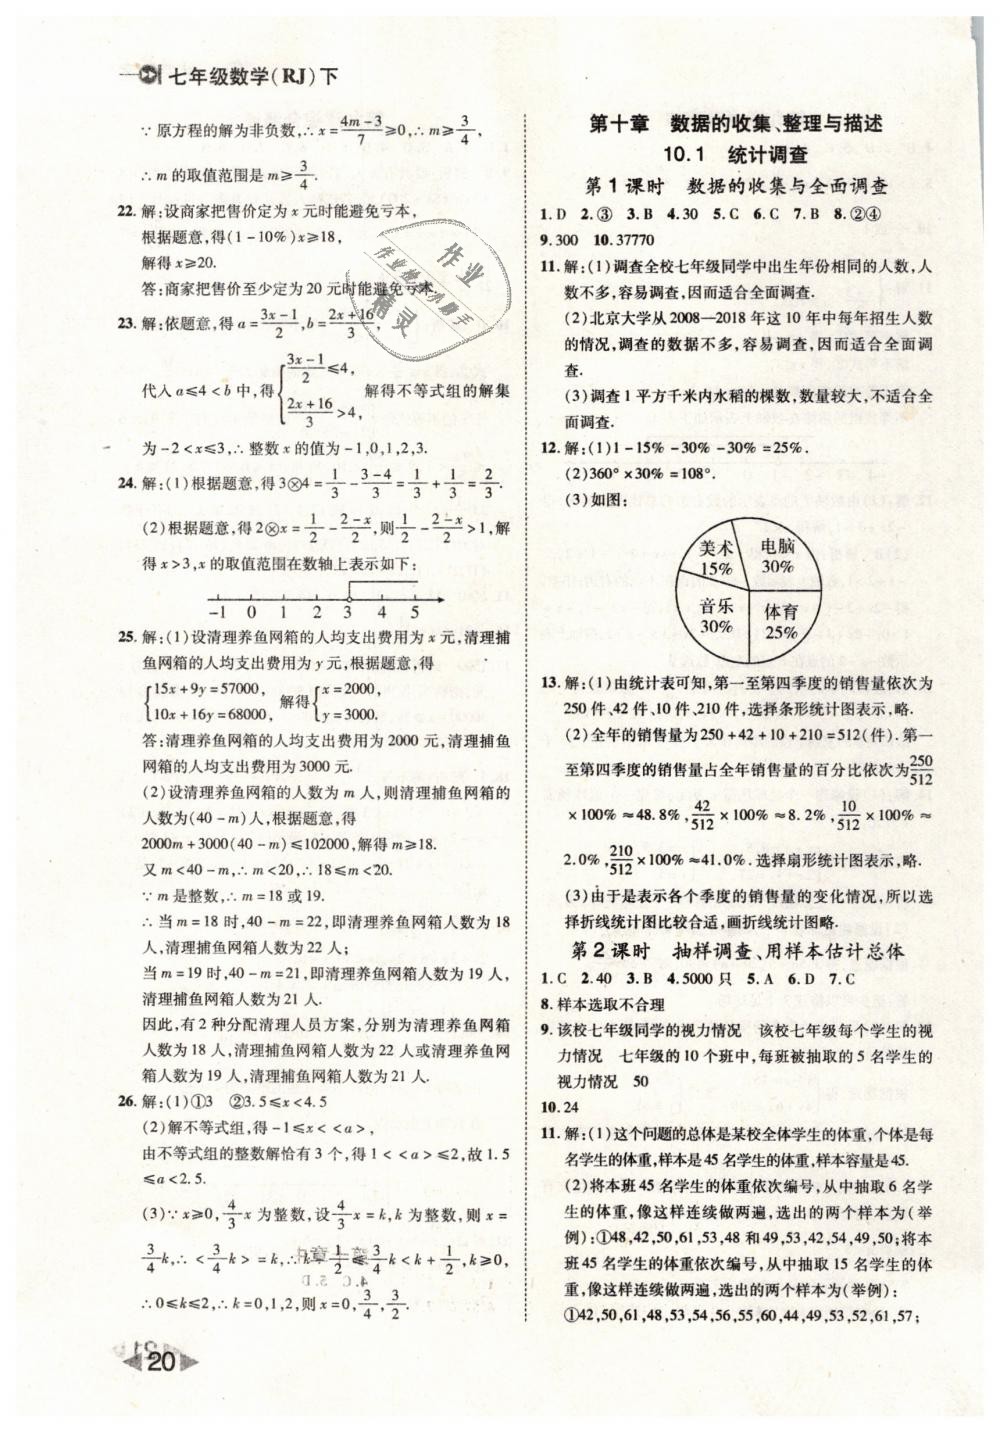 七年级数学(RJ)下
∵原方程的解为非负数,∴x=\frac{4m-3}{7}≥0,∴m≥\frac{3}{4},
∴m的取值范围是m≥\frac{3}{4}.
22.解:设商家把售价定为x元时能避免亏本,
根据题意,得(1-10%)x≥18,
解得x≥20.
答:商家把售价至少定为20元时能避免亏本.
23.解:依题意,得a=\frac{3x-1}{2},b=\frac{2x+16}{3},
代入a≤4<b中,得{\frac{3x-1}{2}≤4, \frac{2x+16}{3}>4, 解得不等式组的解集
为-2<x≤3,∴整数x的值为-1,0,1,2,3.
24.解:(1)根据题意,得3⊗4=\frac{1}{3}-\frac{3-4}{3}=\frac{1}{3}+\frac{1}{3}=\frac{2}{3}.
(2)根据题意,得2⊗x=\frac{1}{2}-\frac{2-x}{2},则\frac{1}{2}-\frac{2-x}{2}>1,解
得x>3,x的取值范围在数轴上表示如下:
-1 0 1 2 3 4 5
25.解:(1)设清理养鱼网箱的人均支出费用为x元,清理捕
鱼网箱的人均支出费用为y元,根据题意,得
{15x+9y=57000, 10x+16y=68000, 解得{x=2000, y=3000.
答:清理养鱼网箱的人均支出费用为2000元,清理捕鱼
网箱的人均支出费用为3000元.
(2)设清理养鱼网箱的人数为m人,则清理捕鱼网箱的
人数为(40-m)人,根据题意,得
2000m+3000(40-m)≤102000,解得m≥18.
又m<40-m,∴m<20,∴18≤m<20.
∵m是整数,∴m=18或19.
∴当m=18时,40-m=22,即清理养鱼网箱人数为18
人,清理捕鱼网箱人数为22人;
当m=19时,40-m=21,即清理养鱼网箱人数为19人,
清理捕鱼网箱人数为21人.
因此,有2种分配清理人员方案,分别为清理养鱼网箱
人数为18人,清理捕鱼网箱人数为22人或清理养鱼网
箱人数为19人,清理捕鱼网箱人数为21人.
26.解:(1)①3 ②3.5≤x<4.5
(2)解不等式组,得-1≤x<<a>,
由不等式组的整数解恰有3个,得1<<a>≤2,故1.5
≤a<2.5.
(3)∵x≥0,\frac{4}{3}x为整数,设\frac{4}{3}x=k,k为整数,则x=
\frac{3}{4}k,∴<\frac{3}{4}k>=k,∴k-\frac{1}{2}≤\frac{3}{4}k<k+\frac{1}{2},k≥0,
∴0≤k≤2,∴k=0,1,2,则x=0,\frac{3}{4},\frac{3}{2}.
20
第十章 数据的收集、整理与描述
10.1 统计调查
第1课时 数据的收集与全面调查
1.D 2.③ 3.B 4.30 5.C 6.C 7.B 8.②④
9.300 10.37770
11.解:(1)调查全校七年级同学中出生年份相同的人数,人
数不多,容易调查,因而适合全面调查.
(2)北京大学从2008—2018年这10年中每年招生人数
的情况,调查的数据不多,容易调查,因而适合全面调
查.
(3)调查1平方千米内水稻的棵数,数量较大,不适合全
面调查.
12.解:(1)1-15%-30%-30%=25%.
(2)360°×30%=108°.
(3)如图:
美术 电脑
15% 30%
音乐 体育
30% 25%
13.解:(1)由统计表可知,第一至第四季度的销售量依次为
250件、42件、10件、210件,选择条形统计图表示,略.
(2)全年的销售量为250+42+10+210=512(件).第一
至第四季度的销售量占全年销售量的百分比依次为\frac{250}{512}
×100%≈48.8%,\frac{42}{512}×100%≈8.2%,\frac{10}{512}×100%≈
2.0%,\frac{210}{512}×100%≈41.0%.选择扇形统计图表示,略.
(3)由于是表示各个季度的销售量的变化情况,所以选
择折线统计图比较合适,画折线统计图略.
第2课时 抽样调查、用样本估计总体
1.C 2.40 3.B 4.5000只 5.A 6.D 7.C
8.样本选取不合理
9.该校七年级同学的视力情况 该校七年级每个学生的视
力情况 七年级的10个班中,每班被抽取的5名学生的
视力情况 50
10.24
11.解:(1)这个问题的总体是某校全体学生的体重,个体是每
名学生的体重,样本是45名学生的体重,样本容量是45.
(2)将本班45名学生的体重依次编号,从中抽取6名学
生的体重,像这样连续做两遍,选出的两个样本为(举
例):①48,42,50,61,53,48和49,53,42,54,49,50;将本
班45名学生的体重依次编号,从中抽取15名学生的体
重,像这样连续做两遍,选出的两个样本为(举例):
①42,50,61,48,53,54,56,55,60,44,49,53,52,61,57;